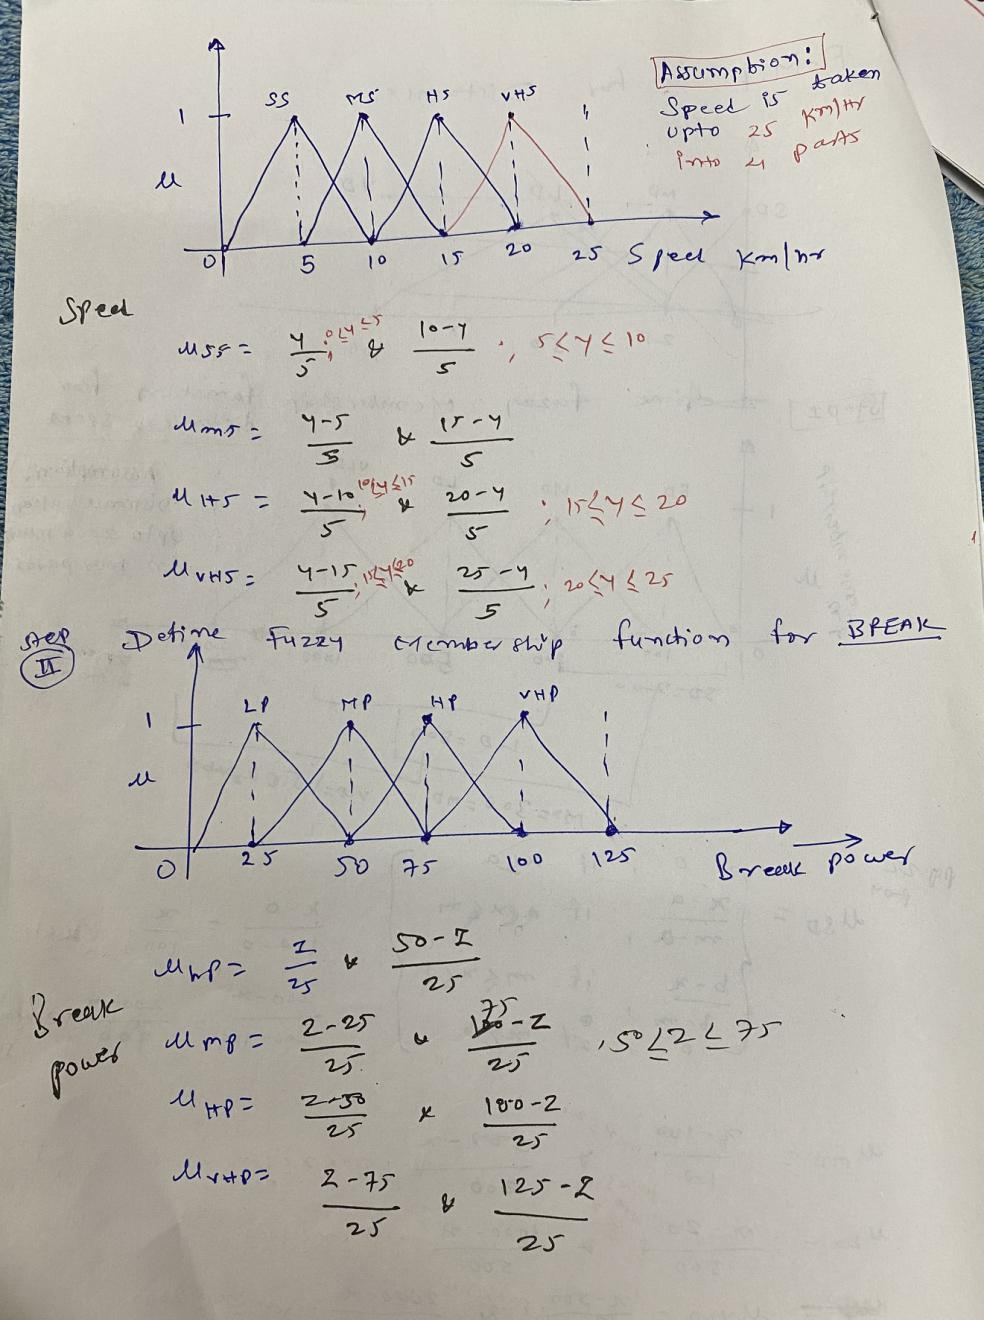 Assumption:
Speed is taken
upto 25 Km/Hr
into 4 parts
SS MS HS VHS
1
μ
0 5 10 15 20 25 Speed Km/hr
Speed
μSS = y/5 ; 0≤y≤5 & 10-y/5 ; 5≤y≤10
μMS = y-5/5 & 15-y/5
μHS = y-10/5 ; 10≤y≤15 & 20-y/5 ; 15≤y≤20
μVHS = y-15/5 ; 15≤y≤20 & 25-y/5 ; 20≤y≤25
Step II Define Fuzzy Membership function for BREAK
LP MP HP VHP
1
μ
0 25 50 75 100 125 Break power
Break power
μLP = z/25 & 50-z/25
μMP = z-25/25 & 75-z/25 , 50≤z≤75
μHP = z-50/25 & 100-z/25
μVHP = z-75/25 & 125-z/25